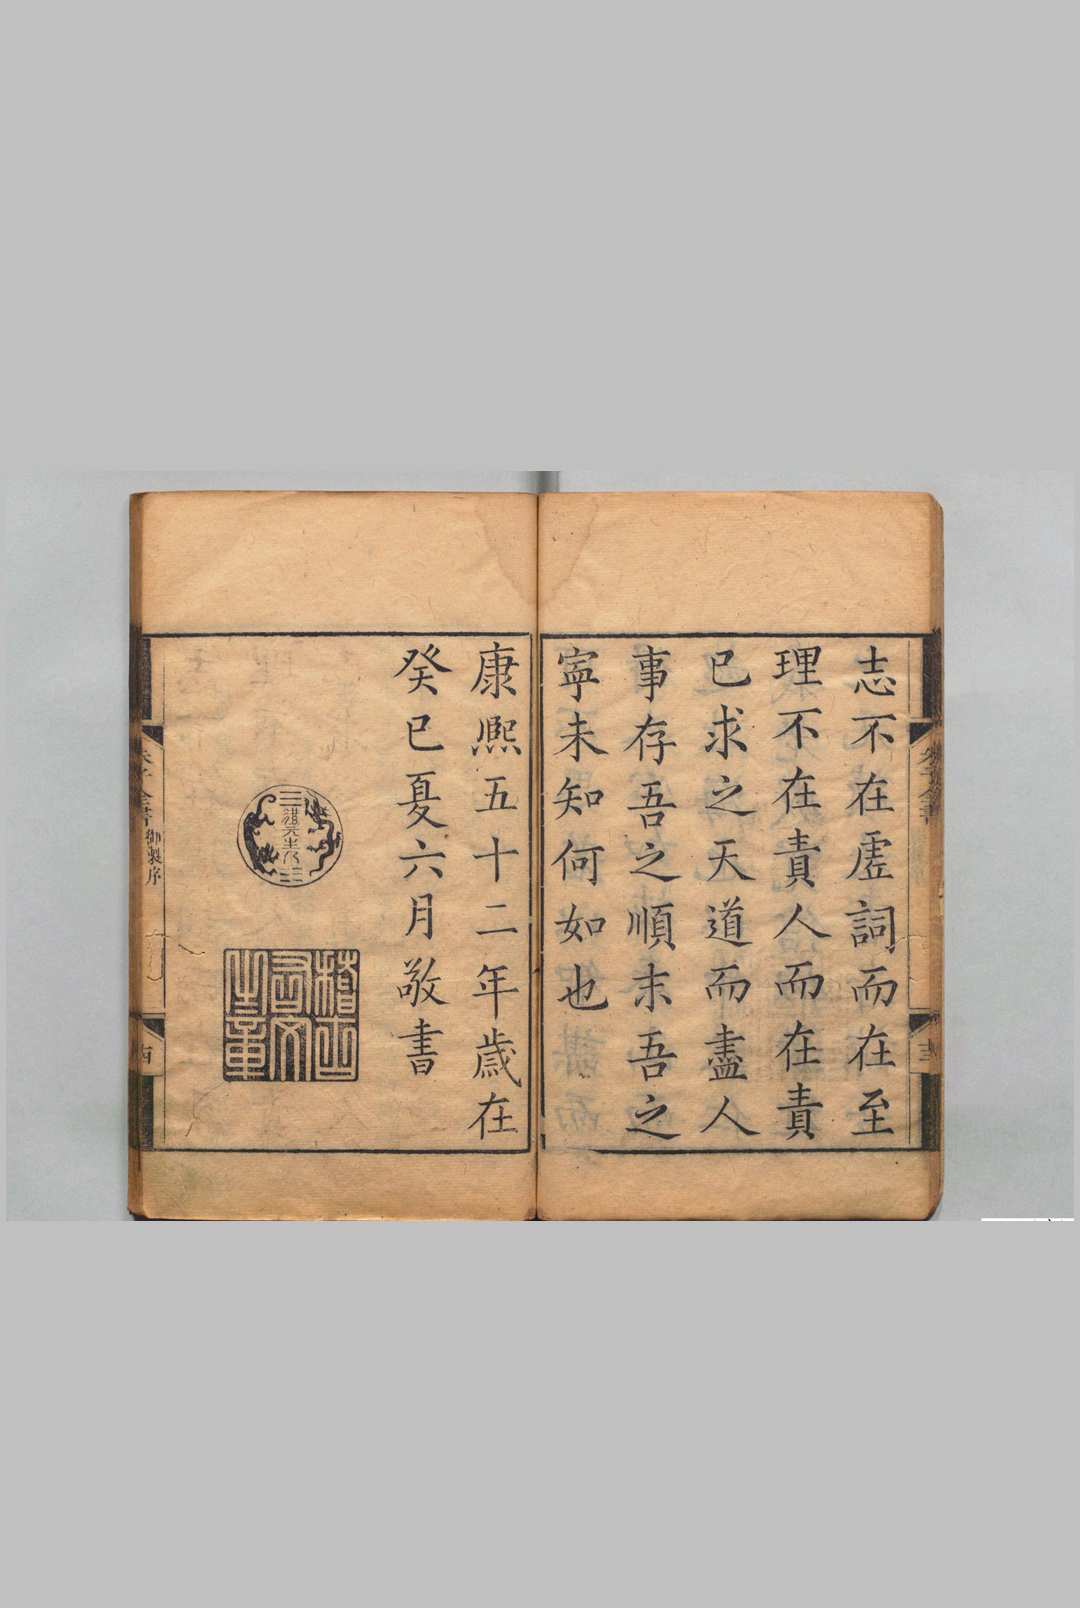 志不在虗詞而在至
理不在責人而在責
已求之天道而盡人
事存吾之順末吾之
寧未知何如也
康熙五十二年歲在
癸巳夏六月敬書
稽古
右文
之章
御製序